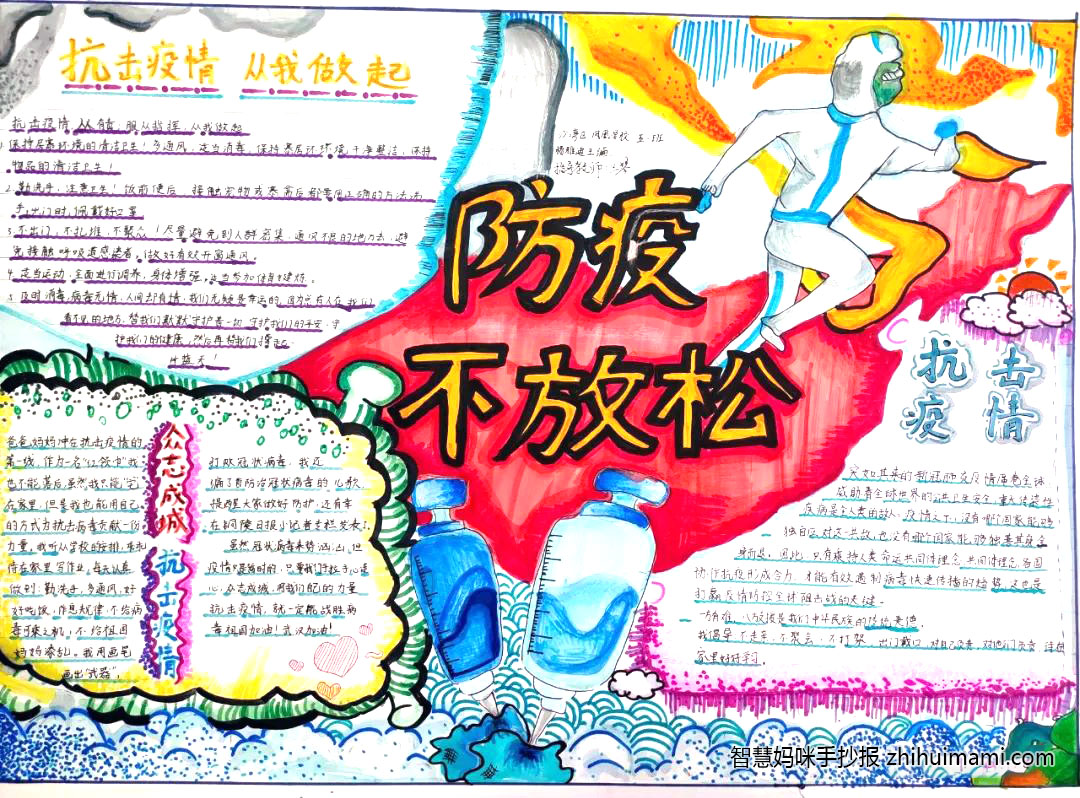 抗击疫情 从我做起
抗击疫情,人人有责,服从指挥,从我做起
1.保持居家环境的清洁卫生!多通风,定当消毒,保持居住环境干净整洁,保持
物品的清洁卫生!
2.勤洗手,注意卫生!饭前便后、接触宠物或
手,出门时,佩戴好口罩
3.不出门,不扎堆,不聚众!尽量避免到人群密集、通风不良的地方去,避
免接触呼吸道感染者。做好有效开窗通风。
4.适当运动,全面进行调养,身体增强,适当参加体育锻炼。
5.及时消毒,病毒无情,人间却有情,我们无疑是幸运的,因为总有人在我们
看不见的地方,替我们默默守护着一切,守护我们的平安,守
护我们的健康,然后再替我们撑起
片蓝天!
凤凰学校 五·班
指导教师
防疫
不放松
抗击
疫情
众志成城 抗击疫情
爸爸妈妈冲在抗击疫情的
第一线,作为一名“红领巾”我
也不能落后,虽然我只能“宅”
在家里,但是我也能用自己
的方式为抗击病毒贡献一份
力量。我听从学校的安排,每天
待在家里写作业,每天认真
做到:勤洗手,多通风,好
好吃饭,作息规律,不给病
毒可乘之机,不给祖国
妈妈添乱。我用画笔
画出“武器”,
打败冠状病毒,我还
编了首防治冠状病毒的儿歌,
提醒大家做好防护,还有幸
在铜陵日报小记者专栏发表了。
虽然冠状病毒来势汹汹,但
疫情是暂时的,只要我们手拉手心连
心,众志成城,用我们自己的力量
抗击疫情,就一定能战胜病
毒祖国加油!武汉加油!
突如其来的新冠肺炎疫情席卷全球
威胁着全球世界的公共卫生安全,重大传染性
疾病是全人类的敌人。疫情之下,没有哪个国家能够
独自应对这一共战,也没有哪个国家能够独善其身全
身而退,因此,只有秉持人类命运共同体理念,共同体理念,各国
协作抗疫形成合力,才能有效遏制病毒快速传播的趋势,这也是
打赢疫情防控全球阻击战的关键。
一方有难,八方支援是我们中华民族的传统美德
我倡导:不走亲,不聚会,不打聚,出门戴口,对自己负责,对他们负责,
家里好好学习。
智慧妈咪手抄报 zhihuimami.com